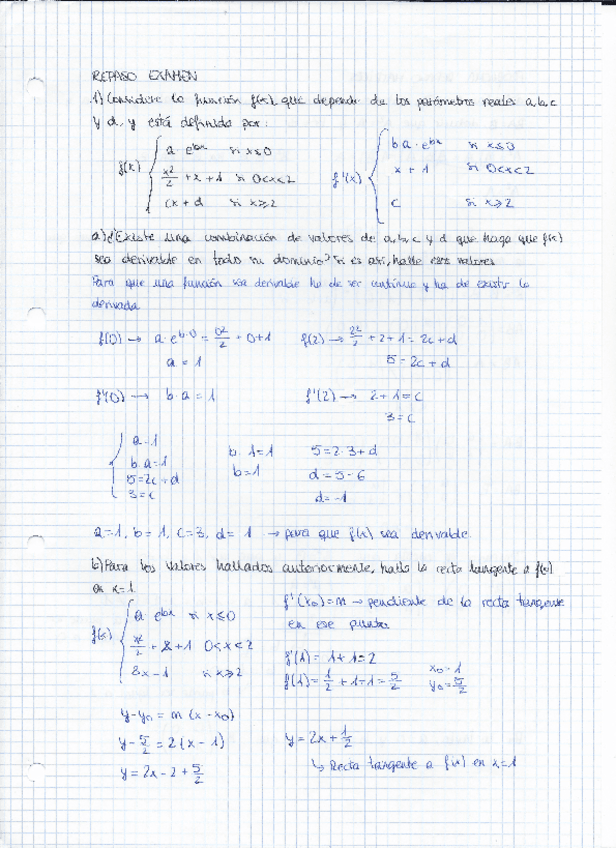 REPASO EXAMEN
1) Considere la función f(x), que depende de los parámetros reales a, b, c
y d, y está definida por:
f(x) { a e^bx si x≤0
x²/2 + x + 1 si 0<x<2
cx + d si x≥2
f'(x) { b a · e^bx si x≤0
x + 1 si 0<x<2
c si x≥2
a) ¿Existe una combinación de valores de a, b, c y d que haga que f(x)
sea derivable en todo su dominio? Si es así, halle esos valores
Para que una función sea derivable ha de ser continua y ha de existir la
derivada
f(0) → a · e^b·0 = 0²/2 + 0+1 f(2) → 2²/2 + 2 + 1 = 2c + d
a = 1 5 = 2c + d
f'(0) → b · a = 1 f'(2) → 2 + 1 = c
3 = c
{ a = 1
b · a = 1
5 = 2c + d
3 = c
b · 1 = 1
b = 1
5 = 2·3 + d
d = 5 - 6
d = -1
a = 1, b = 1, c = 3, d = 1 → para que f(x) sea derivable
b) Para los valores hallados anteriormente, halla la recta tangente a f(x)
en x=1
f(x) { a e^bx si x≤0
x²/2 + x + 1 0<x<2
3x - 1 si x≥2
f'(x₀) = m → pendiente de la recta tangente
en ese punto
f'(1) = 1 + 1 = 2
f(1) = 1/2 + 1 + 1 = 5/2
x₀ = 1
y₀ = 5/2
y - y₀ = m (x - x₀)
y - 5/2 = 2 (x - 1)
y = 2x - 2 + 5/2
y = 2x + 1/2
↳ Recta tangente a f(x) en x=1